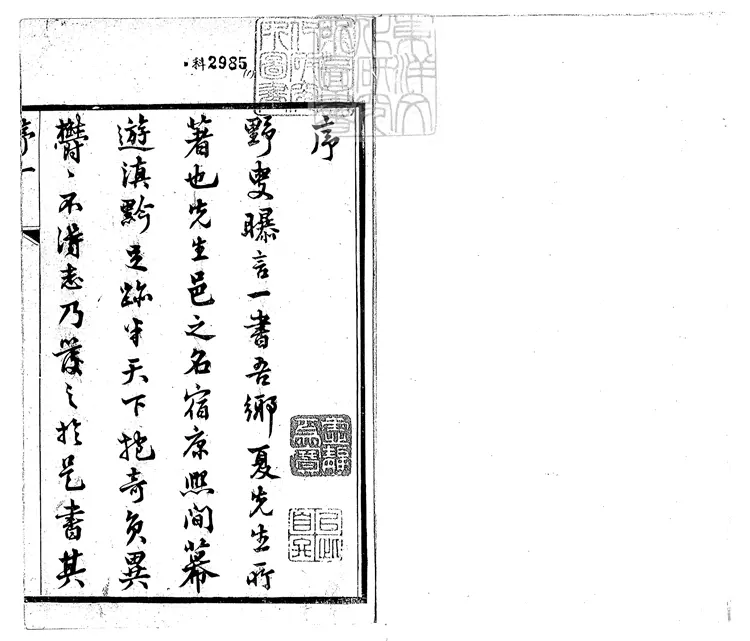 科2985
序
野叟曝言一書吾鄉夏先生所
著也先生邑之名宿康熙間幕
遊滇黔足跡半天下抱奇負異
鬱〻不得志乃發之於是書其
序 一